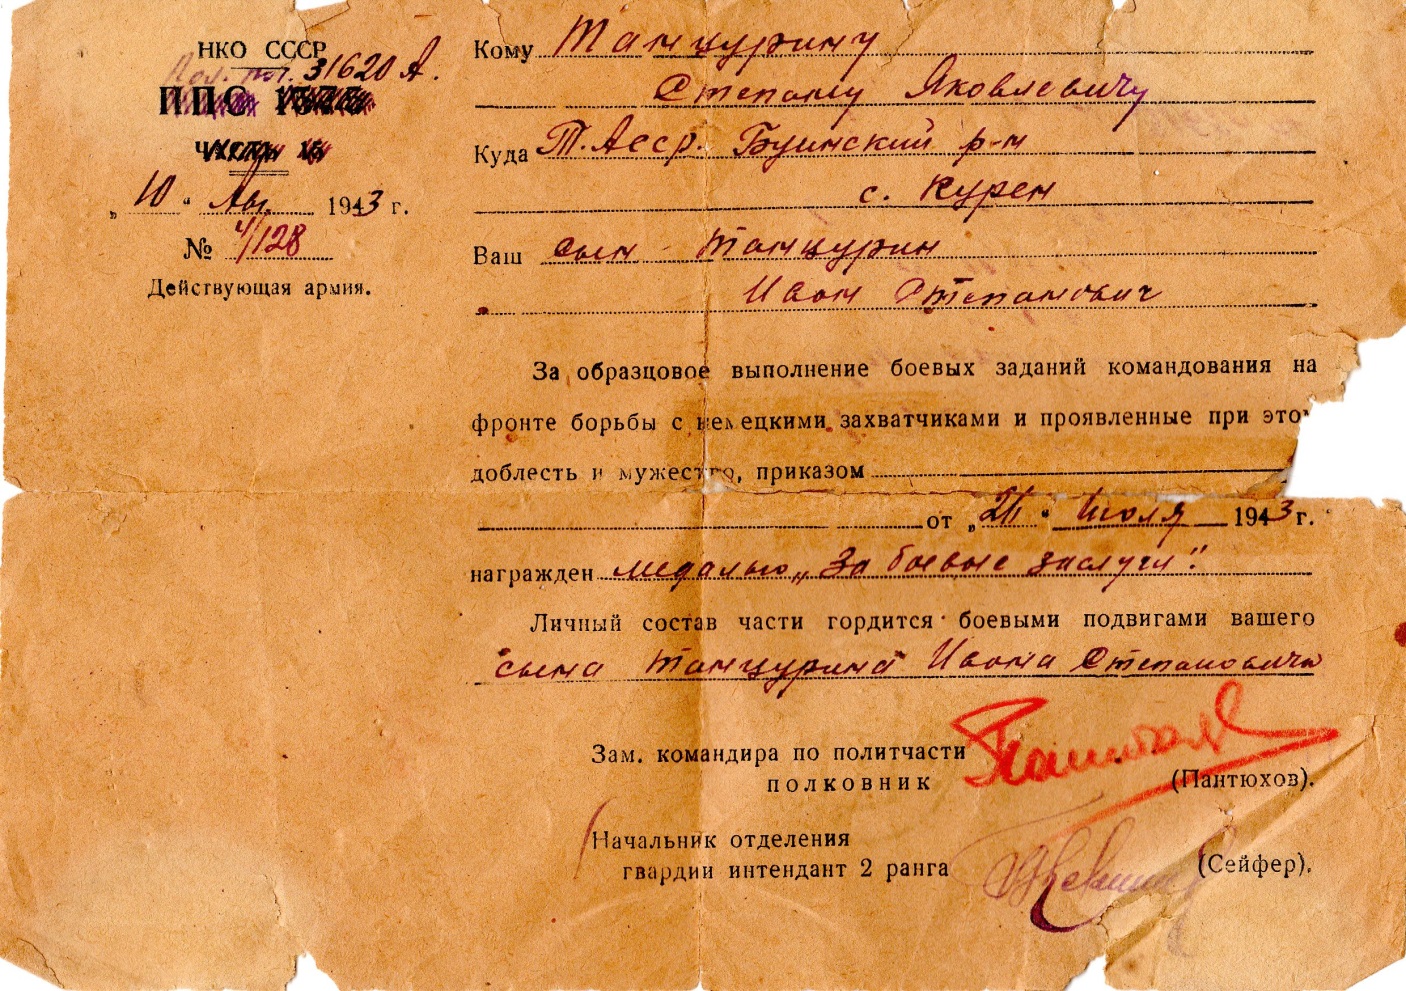 НКО СССР
Пол. поч. 31620 А.
ППС
часть
„10“ Авг. 1943 г.
№ 4/128
Действующая армия.
Кому Танцурину
Степану Яковлевичу
Куда Т.Асср. Буинский р-н
с. Курен
Ваш сын Танцурин
Иван Степанович
За образцовое выполнение боевых заданий командования на
фронте борьбы с немецкими захватчиками и проявленные при этом
доблесть и мужество, приказом
от „ “ июля 1943 г.
награжден медалью „За боевые заслуги".
Личный состав части гордится боевыми подвигами вашего
сына Танцурина Ивана Степановича
Зам. командира по политчасти
полковник (Пантюхов).
Начальник отделения
гвардии интендант 2 ранга (Сейфер).